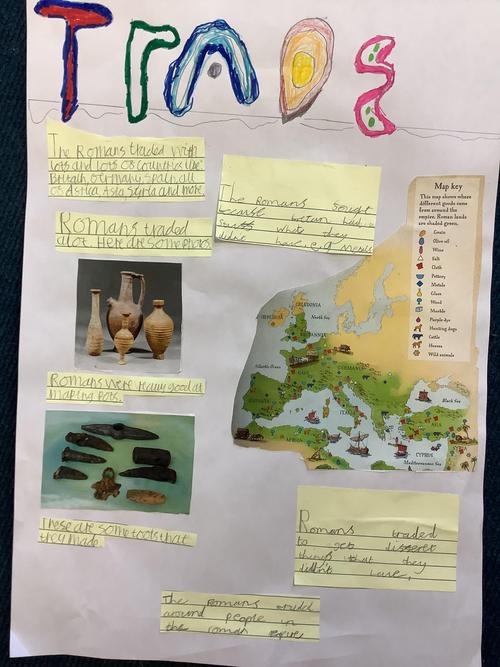 TraDe
The Romans traded with
lots and lots of countries like
Britain, Germany, Spain, all
of Africa Asia Syria and more
The Romans
because Britain had
things which they
didn't have e.g. Metals
Romans traded
a lot. Here are some photos
Map key
This map shows where
different goods came
from around the
empire. Roman lands
are shaded green.
Grain
Olive oil
Wine
Salt
Cloth
Pottery
Metals
Glass
Wood
Marble
Purple dye
Hunting dogs
Cattle
Horses
Wild animals
CALEDONIA
North Sea
Atlantic Ocean
GERMANIA
Black Sea
AFRICA
CYPRUS
Mediterranean Sea
Romans were really good at
making Pots.
These are some tools that
they made
Romans traded
to get different
things that they
didn't have.
The Romans traded
around people in
the roman empire